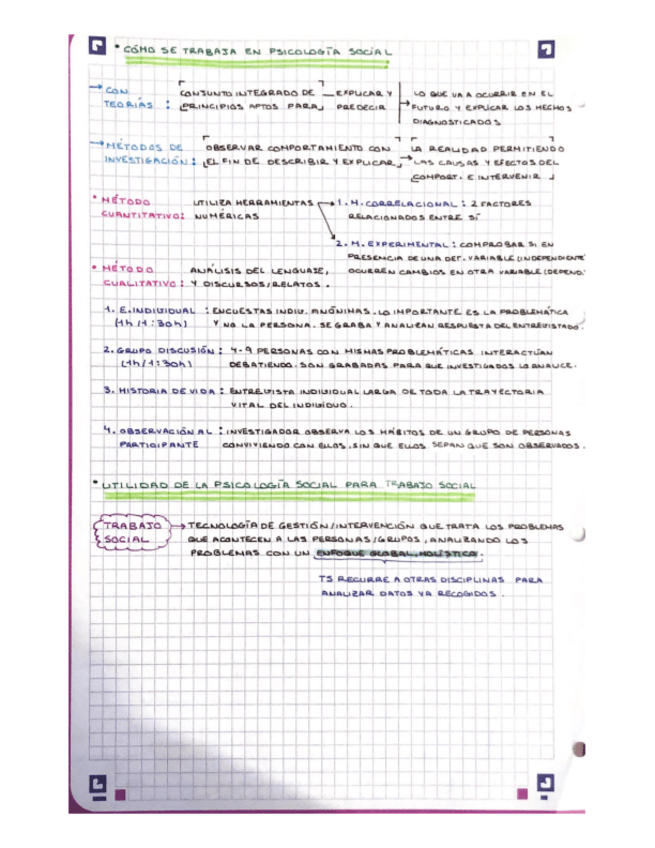 • CÓMO SE TRABAJA EN PSICOLOGÍA SOCIAL
→ CON TEORÍAS : CONJUNTO INTEGRADO DE PRINCIPIOS APTOS PARA EXPLICAR Y PREDECIR → LO QUE VA A OCURRIR EN EL FUTURO Y EXPLICAR LOS HECHOS DIAGNOSTICADOS
→ MÉTODOS DE INVESTIGACIÓN : OBSERVAR COMPORTAMIENTO CON EL FIN DE DESCRIBIR Y EXPLICAR → LA REALIDAD PERMITIENDO LAS CAUSAS Y EFECTOS DEL COMPORT. E INTERVENIR
• MÉTODO CUANTITATIVO: UTILIZA HERRAMIENTAS NUMÉRICAS
→ 1. M. CORRELACIONAL : 2 FACTORES
RELACIONADOS ENTRE SÍ
2. M. EXPERIMENTAL : COMPROBAR SI EN
PRESENCIA DE UNA DET. VARIABLE (INDEPENDIENTE
OCURREN CAMBIOS EN OTRA VARIABLE (DEPEND.
• MÉTODO CUALITATIVO: ANÁLISIS DEL LENGUAJE, Y DISCURSOS/RELATOS.
1. E. INDIVIDUAL : ENCUESTAS INDIV. ANÓNIMAS. LO IMPORTANTE ES LA PROBLEMÁTICA
(1h/1:30h) Y NO LA PERSONA. SE GRABA Y ANALIZAN RESPUESTA DEL ENTREVISTADO.
2. GRUPO DISCUSIÓN : 4-9 PERSONAS CON MISMAS PROBLEMÁTICAS INTERACTÚAN
(1h/1:30h) DEBATIENDO. SON GRABADAS PARA QUE INVESTIGADOS LO ANALICE.
3. HISTORIA DE VIDA : ENTREVISTA INDIVIDUAL LARGA DE TODA LA TRAYECTORIA
VITAL DEL INDIVIDUO.
4. OBSERVACIÓN AL : INVESTIGADOR OBSERVA LOS HÁBITOS DE UN GRUPO DE PERSONAS
PARTICIPANTE CONVIVIENDO CON ELLOS, SIN QUE ELLOS SEPAN QUE SON OBSERVADOS.
• UTILIDAD DE LA PSICOLOGÍA SOCIAL PARA TRABAJO SOCIAL
TRABAJO SOCIAL → TECNOLOGÍA DE GESTIÓN/INTERVENCIÓN QUE TRATA LOS PROBLEMAS
QUE ACONTECEN A LAS PERSONAS/GRUPOS, ANALIZANDO LOS
PROBLEMAS CON UN ENFOQUE GLOBAL, HOLÍSTICA.
TS RECURRE A OTRAS DISCIPLINAS PARA
ANALIZAR DATOS YA RECOGIDOS.